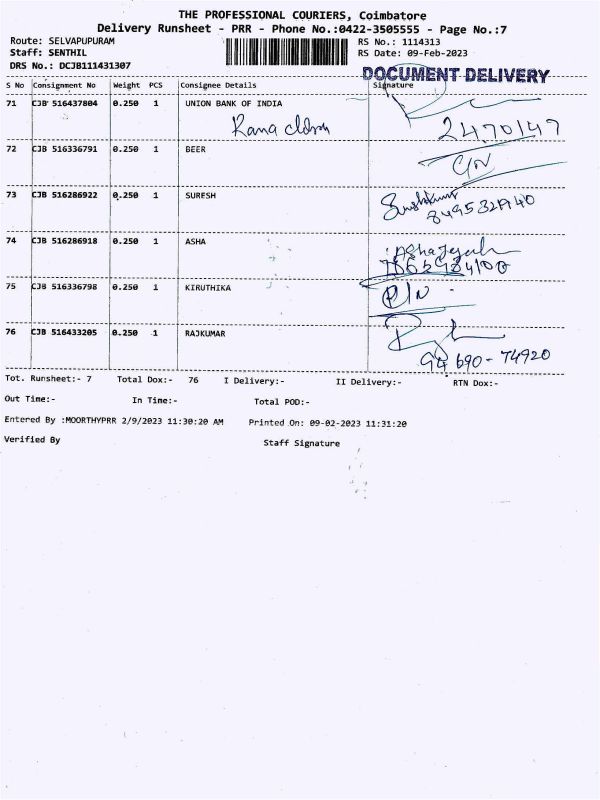 THE PROFESSIONAL COURIERS, Coimbatore
Delivery Runsheet - PRR - Phone No.:0422-3505555 - Page No.:7
Route: SELVAPUPURAM RS No.: 1114313
Staff: SENTHIL RS Date: 09-Feb-2023
DRS No.: DCJB111431307
DOCUMENT DELIVERY
S No Consignment No Weight PCS Consignee Details Signature
71 CJB 516437804 0.250 1 UNION BANK OF INDIA
2470147
72 CJB 516336791 0.250 1 BEER
C/N
73 CJB 516286922 0.250 1 SURESH
74 CJB 516286918 0.250 1 ASHA
75 CJB 516336798 0.250 1 KIRUTHIKA
76 CJB 516433205 0.250 1 RAJKUMAR
94 690-74920
Tot. Runsheet:- 7 Total Dox:- 76 I Delivery:- II Delivery:- RTN Dox:-
Out Time:- In Time:- Total POD:-
Entered By :MOORTHYPRR 2/9/2023 11:30:20 AM Printed On: 09-02-2023 11:31:20
Verified By Staff Signature